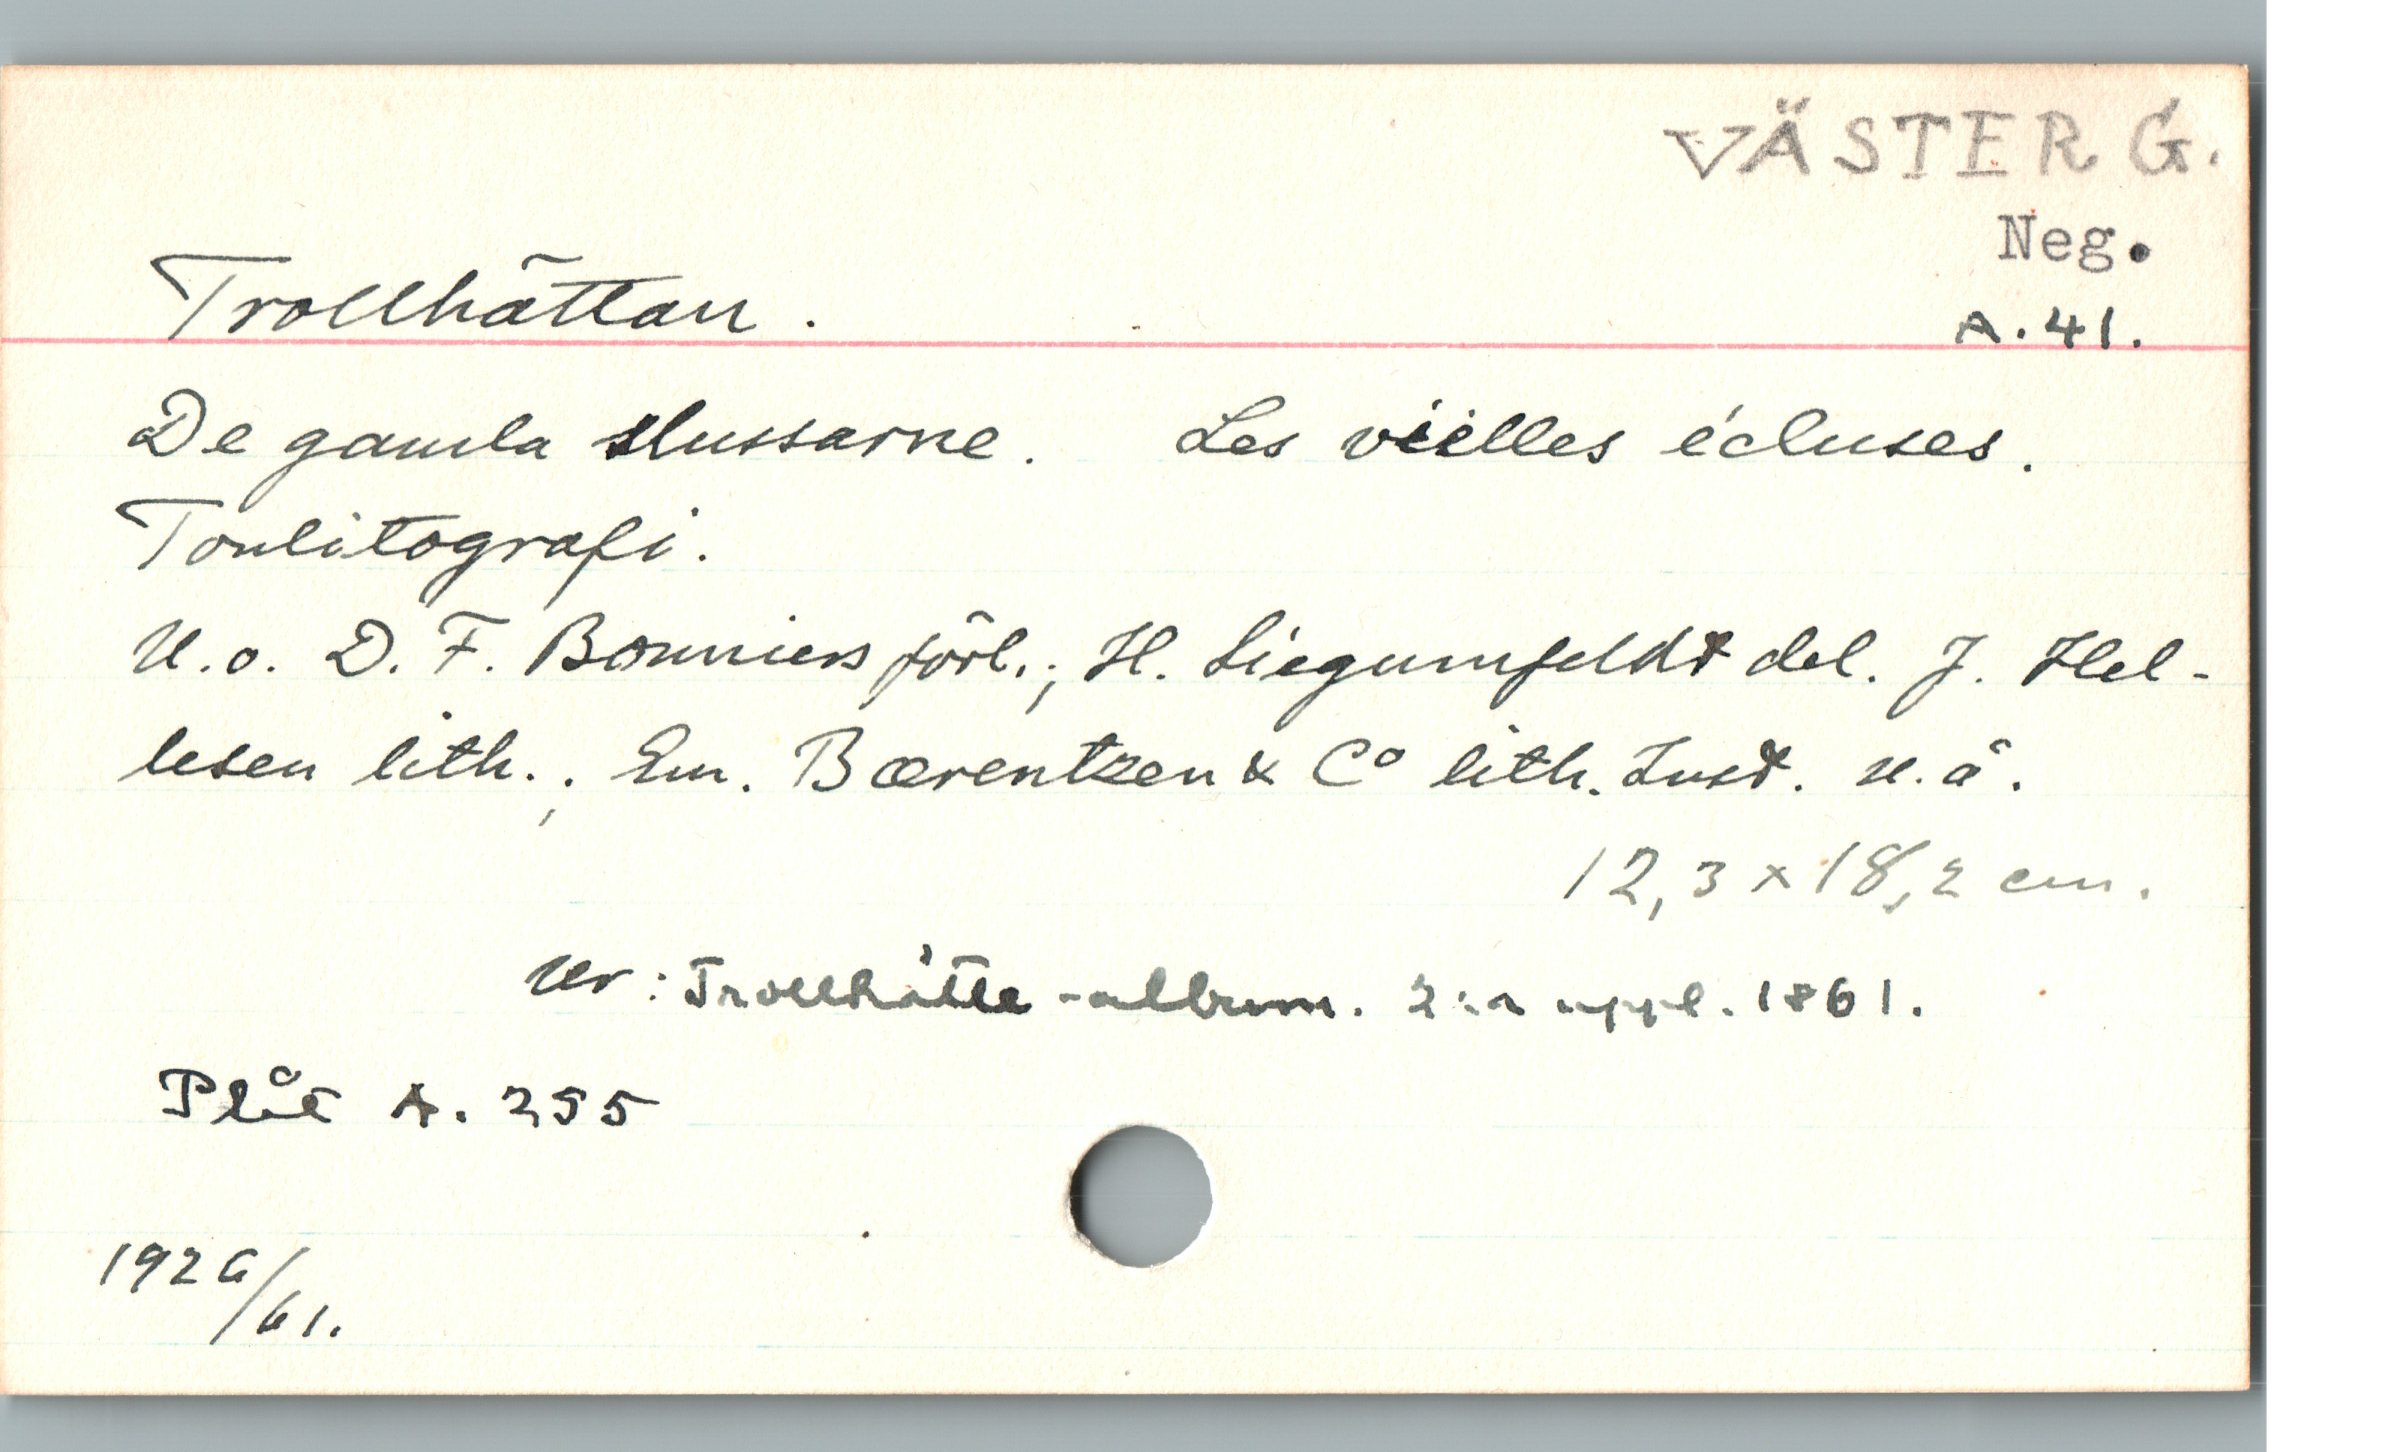 VÄSTERG.
Neg.
Trollhättan.
A. 41.
De gamla slussarne. Les vieilles écluses.
Tonlitografi.
U.o. D. F. Bonniers förl.; H. Siegumfeldt del. J. Hel-
lesen lith.; Em. Bærentzen & Co lith. Inst. u.å.
12,3 x 18,2 cm.
Ur: Trollhätte-album. 2:a uppl. 1861.
Plåt A. 255
1926/61.